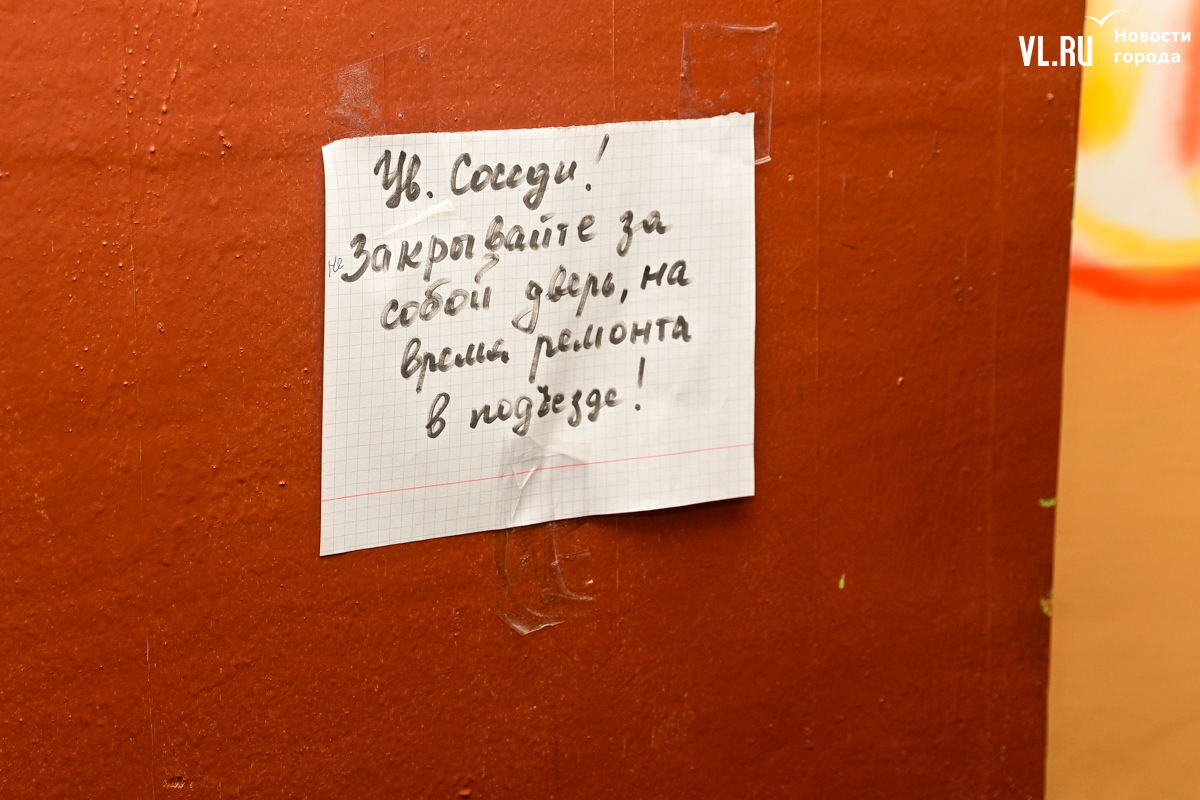 VL.RU Новости
города
Ув. Соседи!
не Закрывайте за
собой дверь, на
время ремонта
в подъезде!